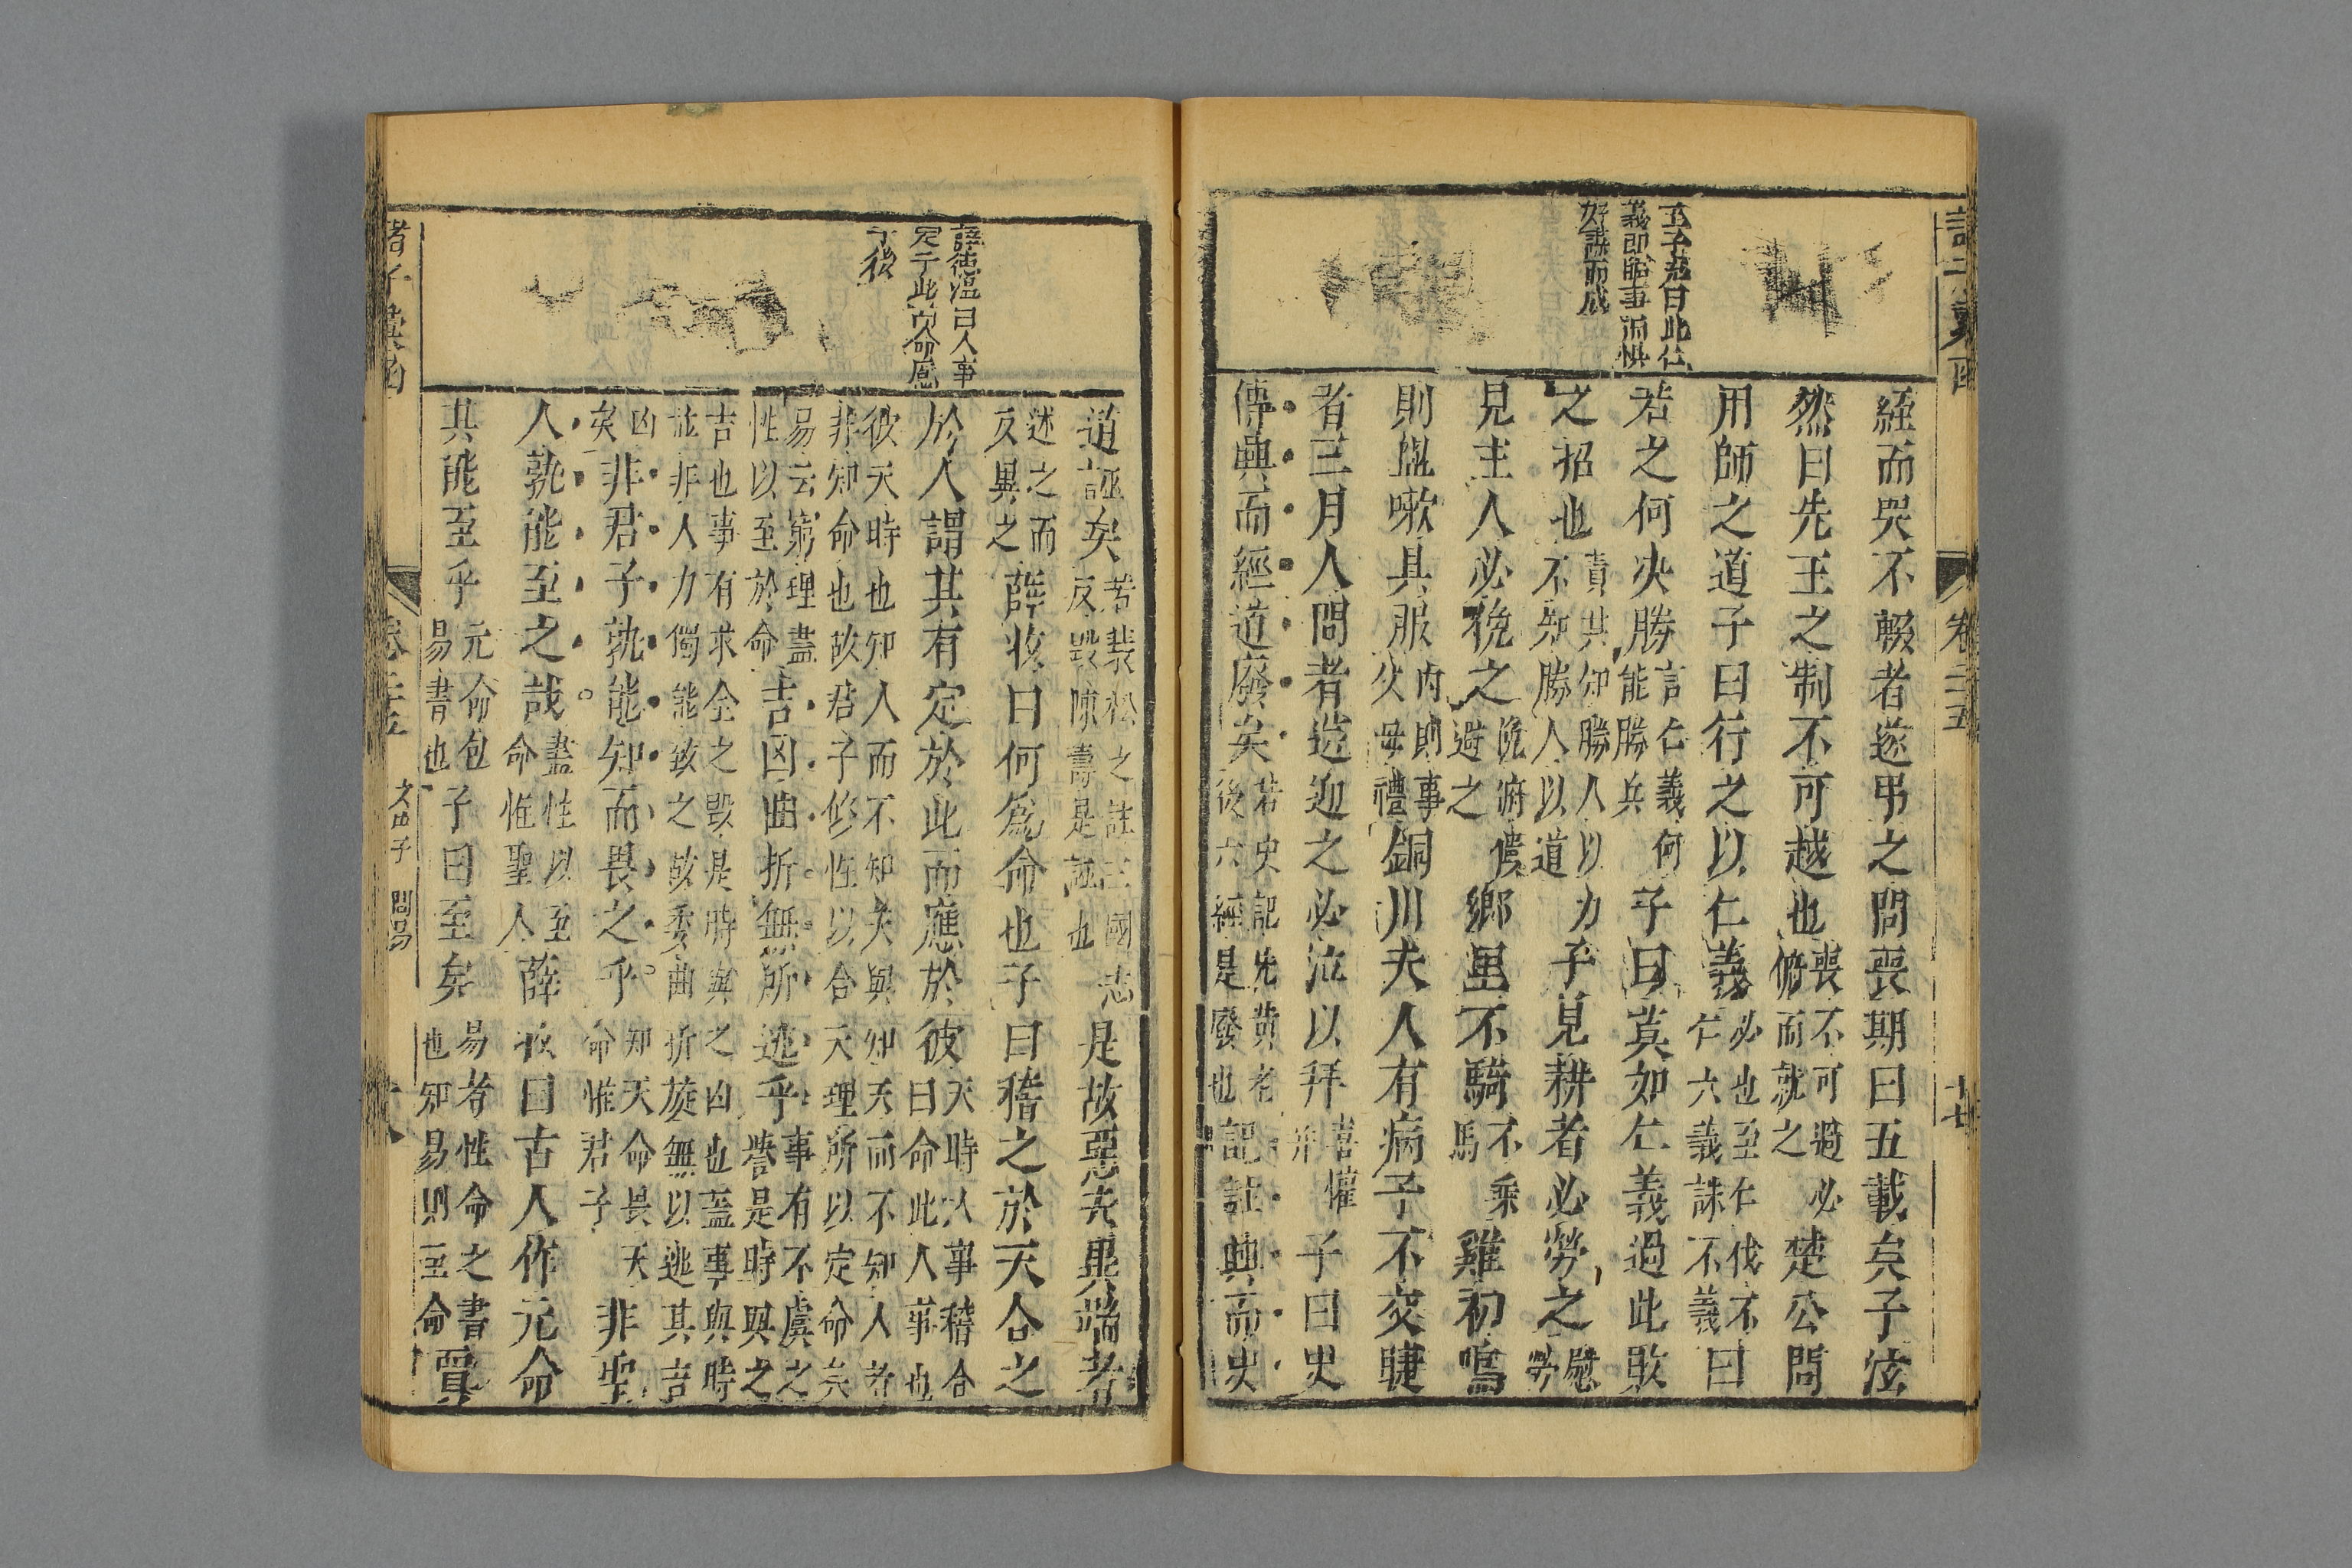 經而哭不輟者遂弔之問喪期曰五載矣子泫
然曰先王之制不可越也喪不可過必俯而就之楚公問
用師之道子曰行之以仁義必也至仁伐不仁六義誅不義曰
若之何決勝言仁義何能勝兵子曰莫如仁義過此敗
之招也責其知勝人以力不知勝人以道子見耕者必勞之慰勞
見王人必俛之俛俯僂避之鄉里不騎不乘馬雞初鳴
則盥嗽具服內則事父母禮銅川夫人有病子不交睫
者三月人問者送迎之必泣以拜喜懼并子曰史
傳興而經道廢矣若史記先黃老後六經是廢也記註興而史
道誣矣若裴松之註三國志反毀陳壽是誣也是故惡夫異端者
述之而反異之薛收曰何為命也子曰稽之於天合之
於人謂其有定於此而應於彼天時人事稽合曰命此人事也
彼天時也知人而不知天與知天而不知人者非知命也故君子修性以合天理所以定命矣
易云窮理盡性以至於命吉凶曲折無所逃乎事有不虞之譽是時與之
吉也事有求全之毀是時與之凶也蓋事與時並非人力獨能致之故委曲折旋無以逃其吉
凶矣非君子孰能知而畏之乎知天命畏天命惟君子非聖
人孰能至之哉盡性以至命惟聖人薛收曰古人作元命
其能至乎元命包易書也子曰至矣易者性命之書也知易則至命賈
卷二十五
十七
諸子彙函
文中子
問易
十八